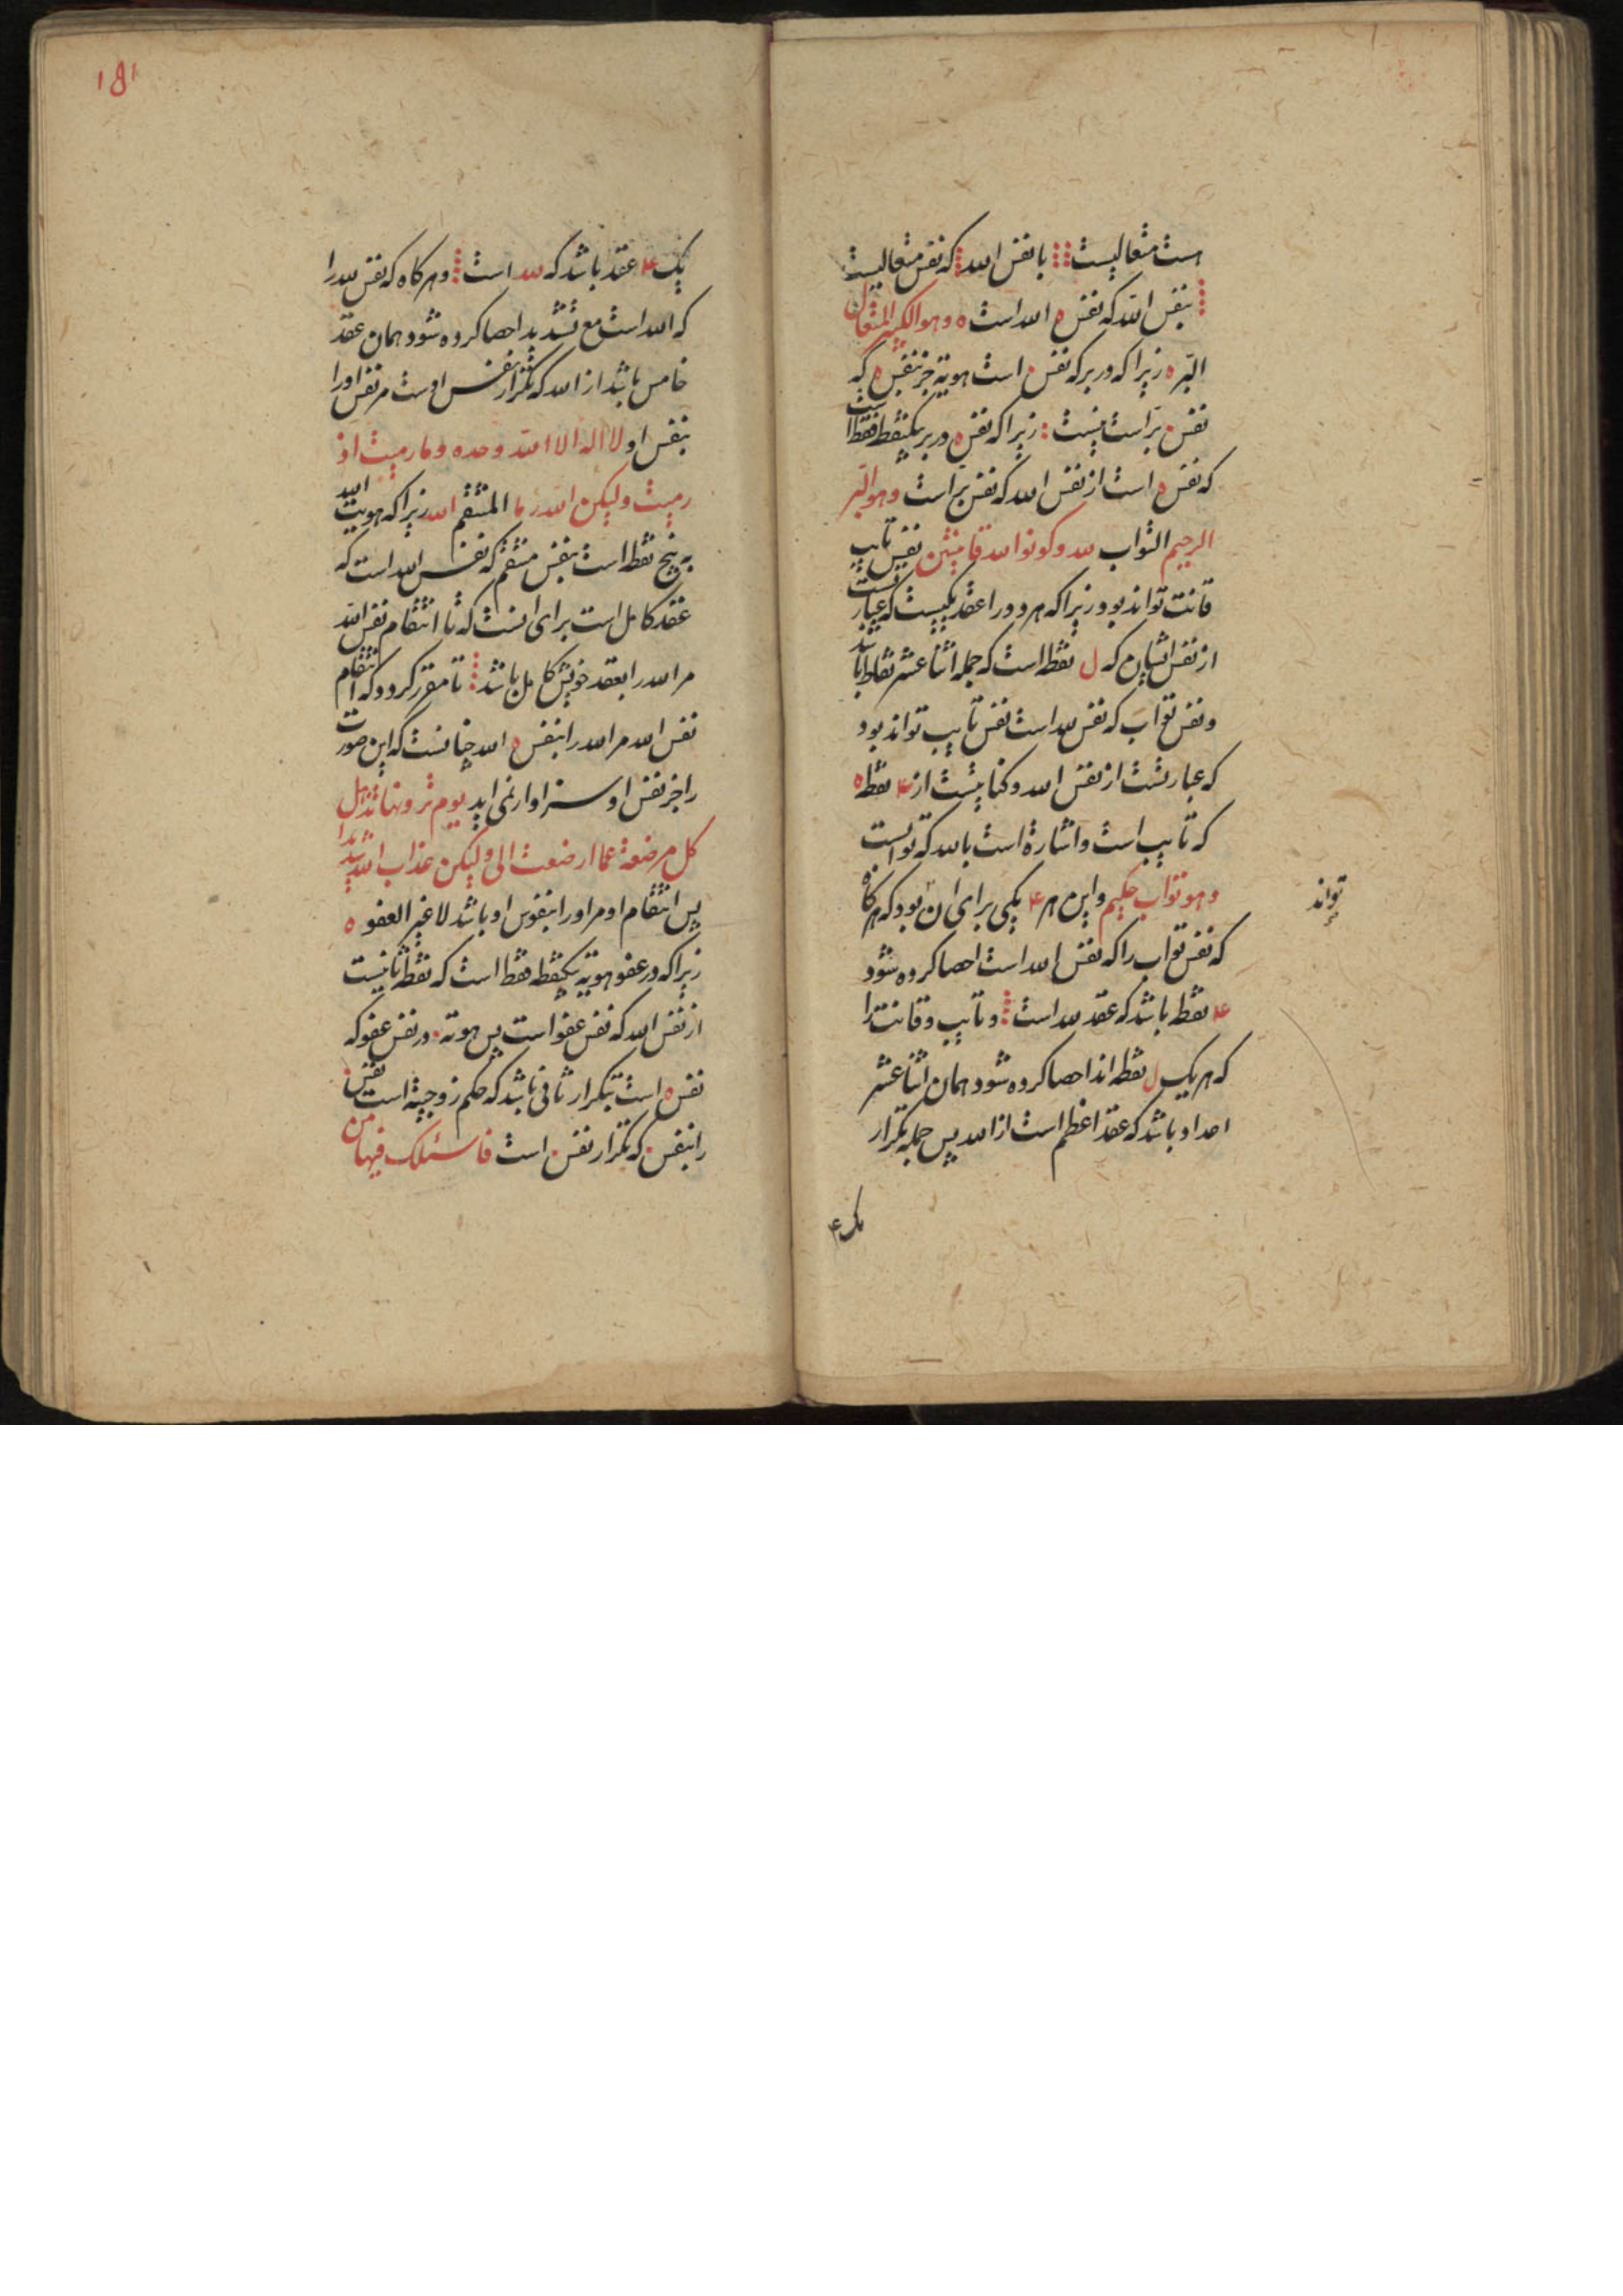 هست متعالیست با نفس الله که نفس متعالیست
بنفس الله که نفس ه الله است ه وهو الکبیر المتعال
البر ه زیرا که در بر که نفس ه است هویة جز نفس ه که
نفس بر است نیست زیرا که نفس ه در بر یکنقطه فقط است
که نفس ه است از نفس الله که نفس بر است وهو البر
الرحیم التواب لله وکونوا لله قانتین نفس تایب
قانت تواند بود زیرا که هر دو را عقد یکیست که عبارتست
از نفس ایشان که ل نقطه است که جمله اثنا عشر نقاط باشد
و نفس تواب که نفس لله است نفس تایب تواند بود
که عبارتست از نفس الله و کنایتست از ۴ نقطه
که تایب است و اشاره است بالله که توابست
وهو تواب حکیم و این هر ۴ یکی برای آن بود که هرکاه
تواند
که نفس تواب را که نفس الله است احصا کرده شود
۴ نقطه باشد که عقد لله است و تایب و قانت را
که هر یک ل نقطه اند احصا کرده شود همان اثنا عشر
اعداد باشد که عقد اعظم است از الله پس جمله تکرار
یک ۴
۱۵۱
یک ۴ عقد باشد که لله است و هرکاه که نفس لله را
که الله است مع تشدید احصا کرده شود همان عقد
خامس باشد از الله که تکرار نفس اوست مر نفس او را
بنفس او لا اله الا الله وحده وما رمیت اذ
رمیت ولیکن الله رما المنتقم الله زیرا که هویت الله
به پنج نقطه است بنفس منتقم که نفس الله است که
عقد کامل است برای انست که تا انتقام نفس الله
مر الله را بعقد خویش کامل باشد تا مقرر کردد که انتقام
نفس الله مر الله را بنفس ه الله چنانست که این صورت
را جز نفس او سزاوار نمی اید یوم ترونها تذهل
کل مرضعة عما ارضعت الی ولیکن عذاب الله شدید
پس انتقام او مر او را بنفوس او باشد لا غیر العفو ه
زیرا که در عفو هویه یکنقطه فقط است که نقطه ثانیست
از نفس الله که نفس عفو است پس هوته در نفس عفو که
نفس ه است بتکرار ثانی باشد که حکم زوجیة است نفس
را بنفس که تکرار نفس است فاسئلک فیها من